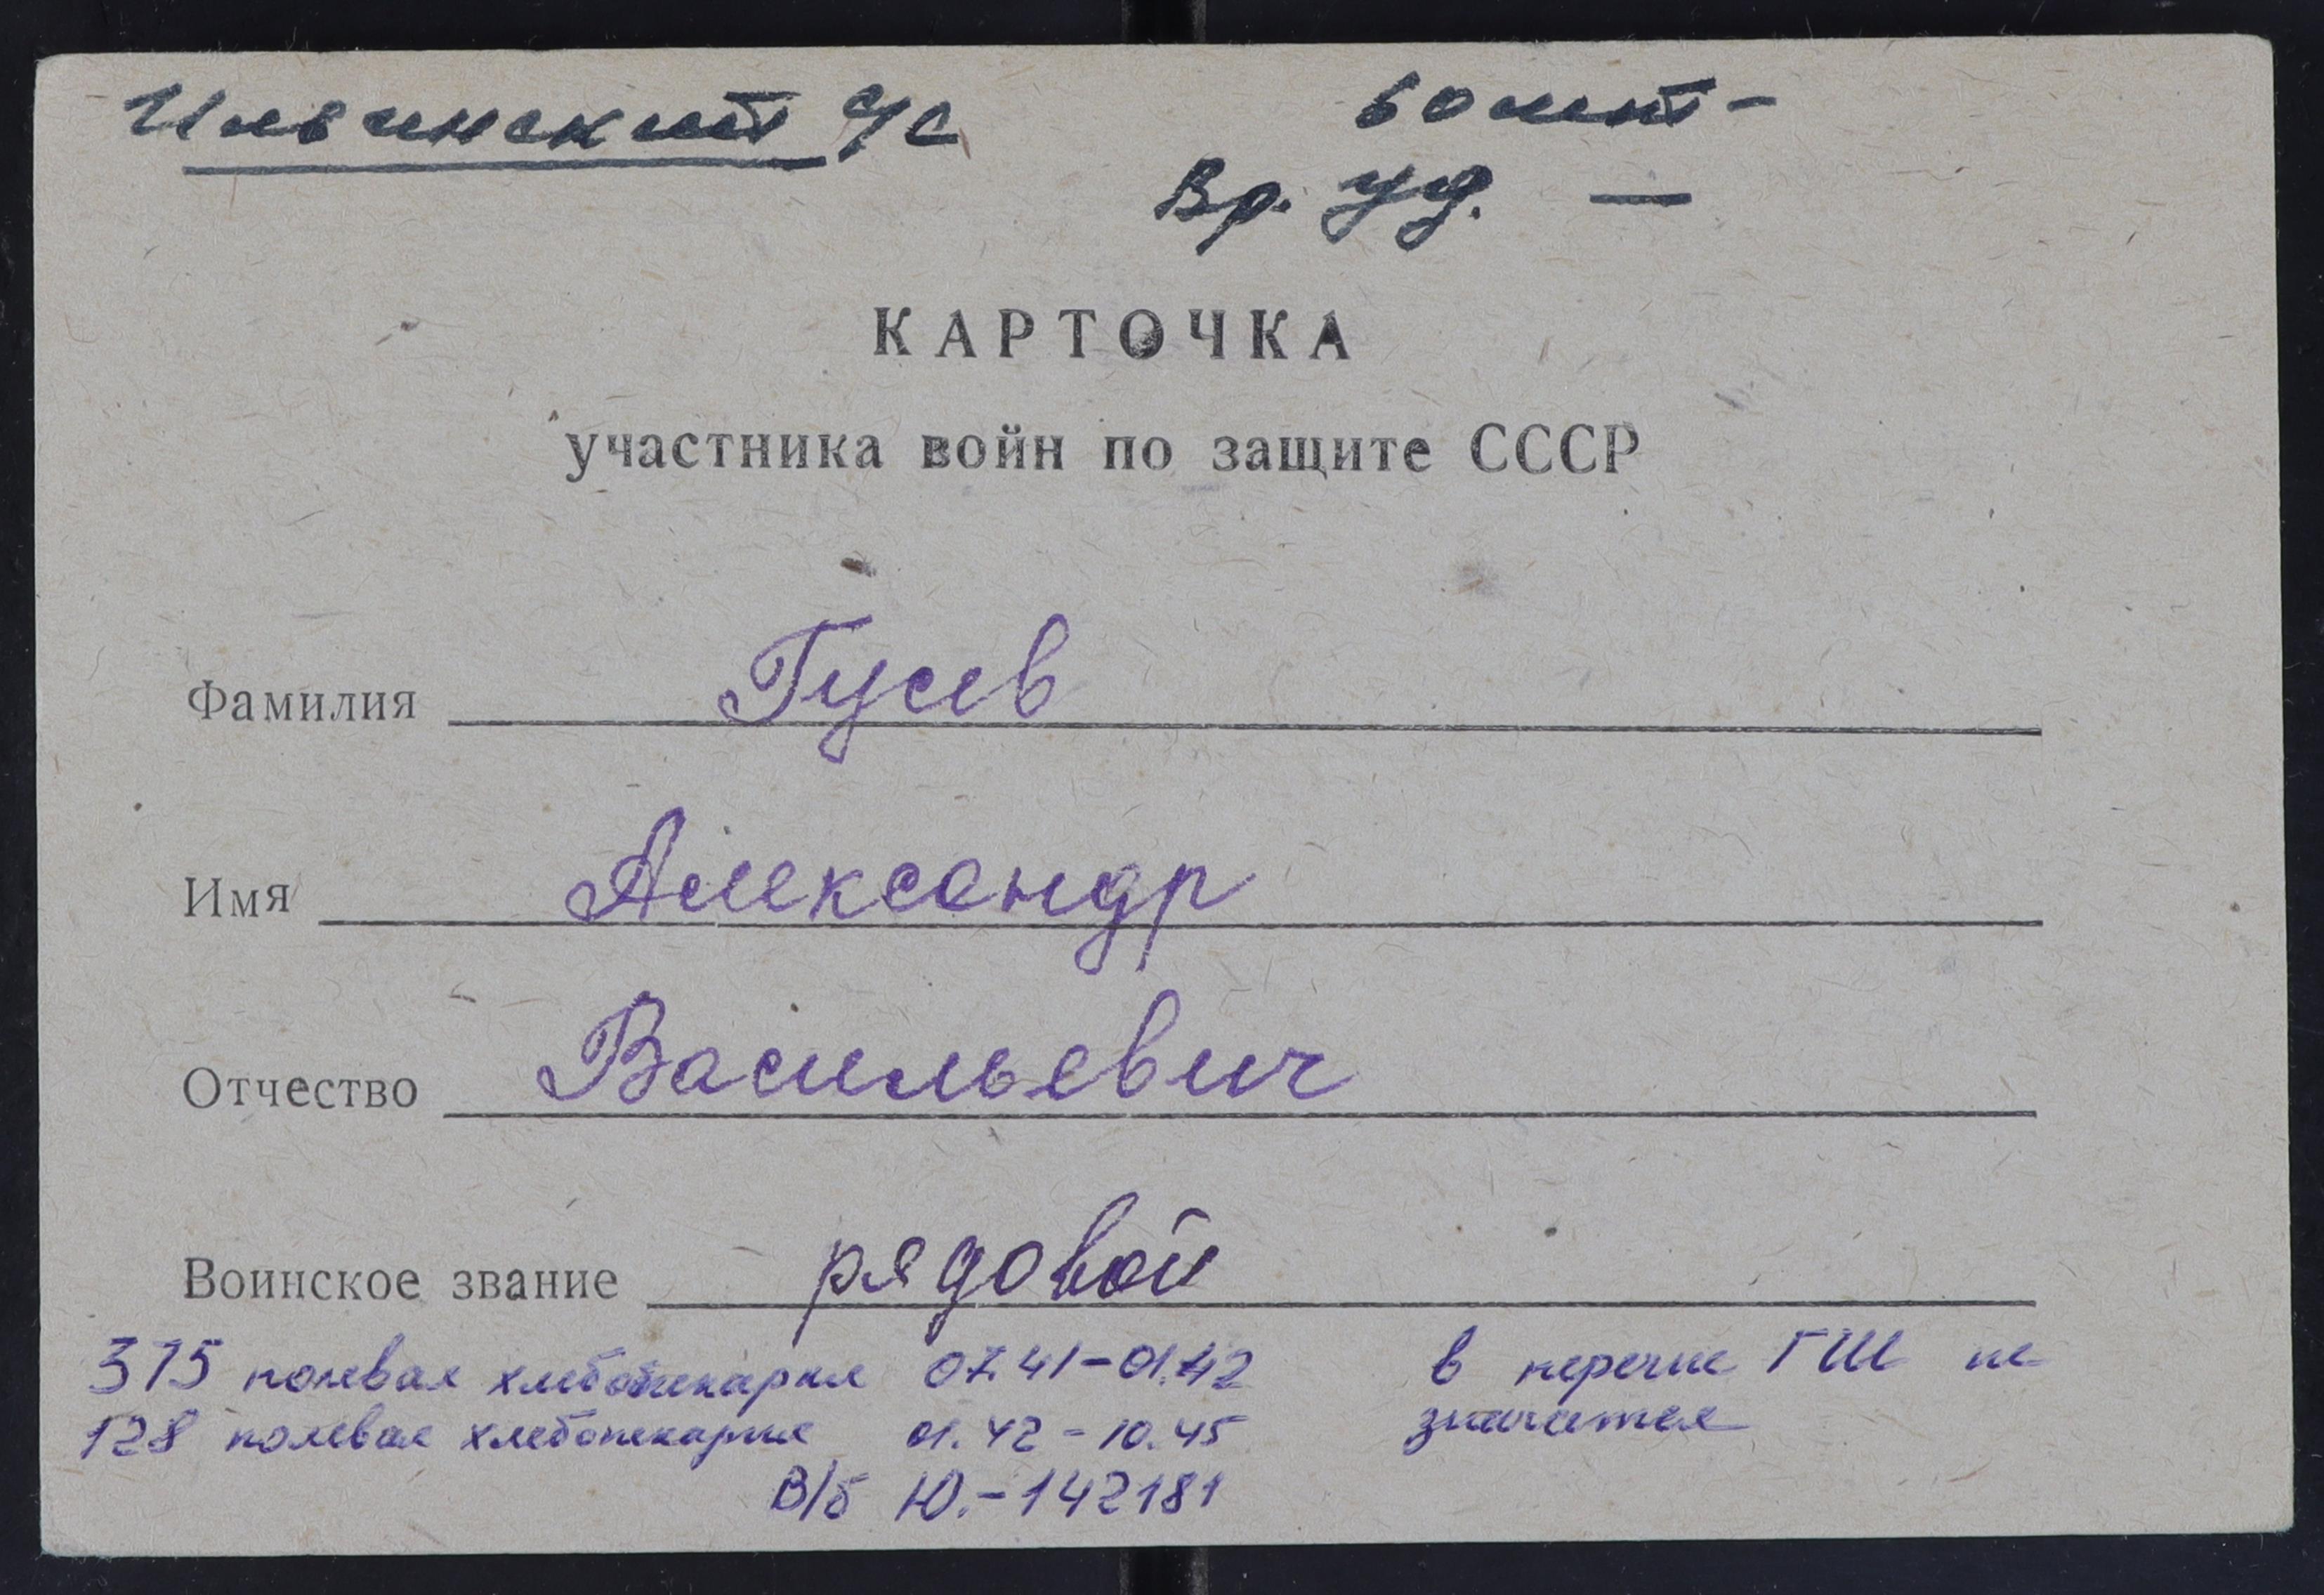 Ильинский с/с
Вр. уд. —
КАРТОЧКА
участника войн по защите СССР
Фамилия Гусев
Имя Александр
Отчество Васильевич
Воинское звание рядовой
375 полевая хлебопекарня 07.41-01.42
128 полевая хлебопекарня 01.42-10.45
в перечне ГШ не
значатся
В/б Ю.-142181